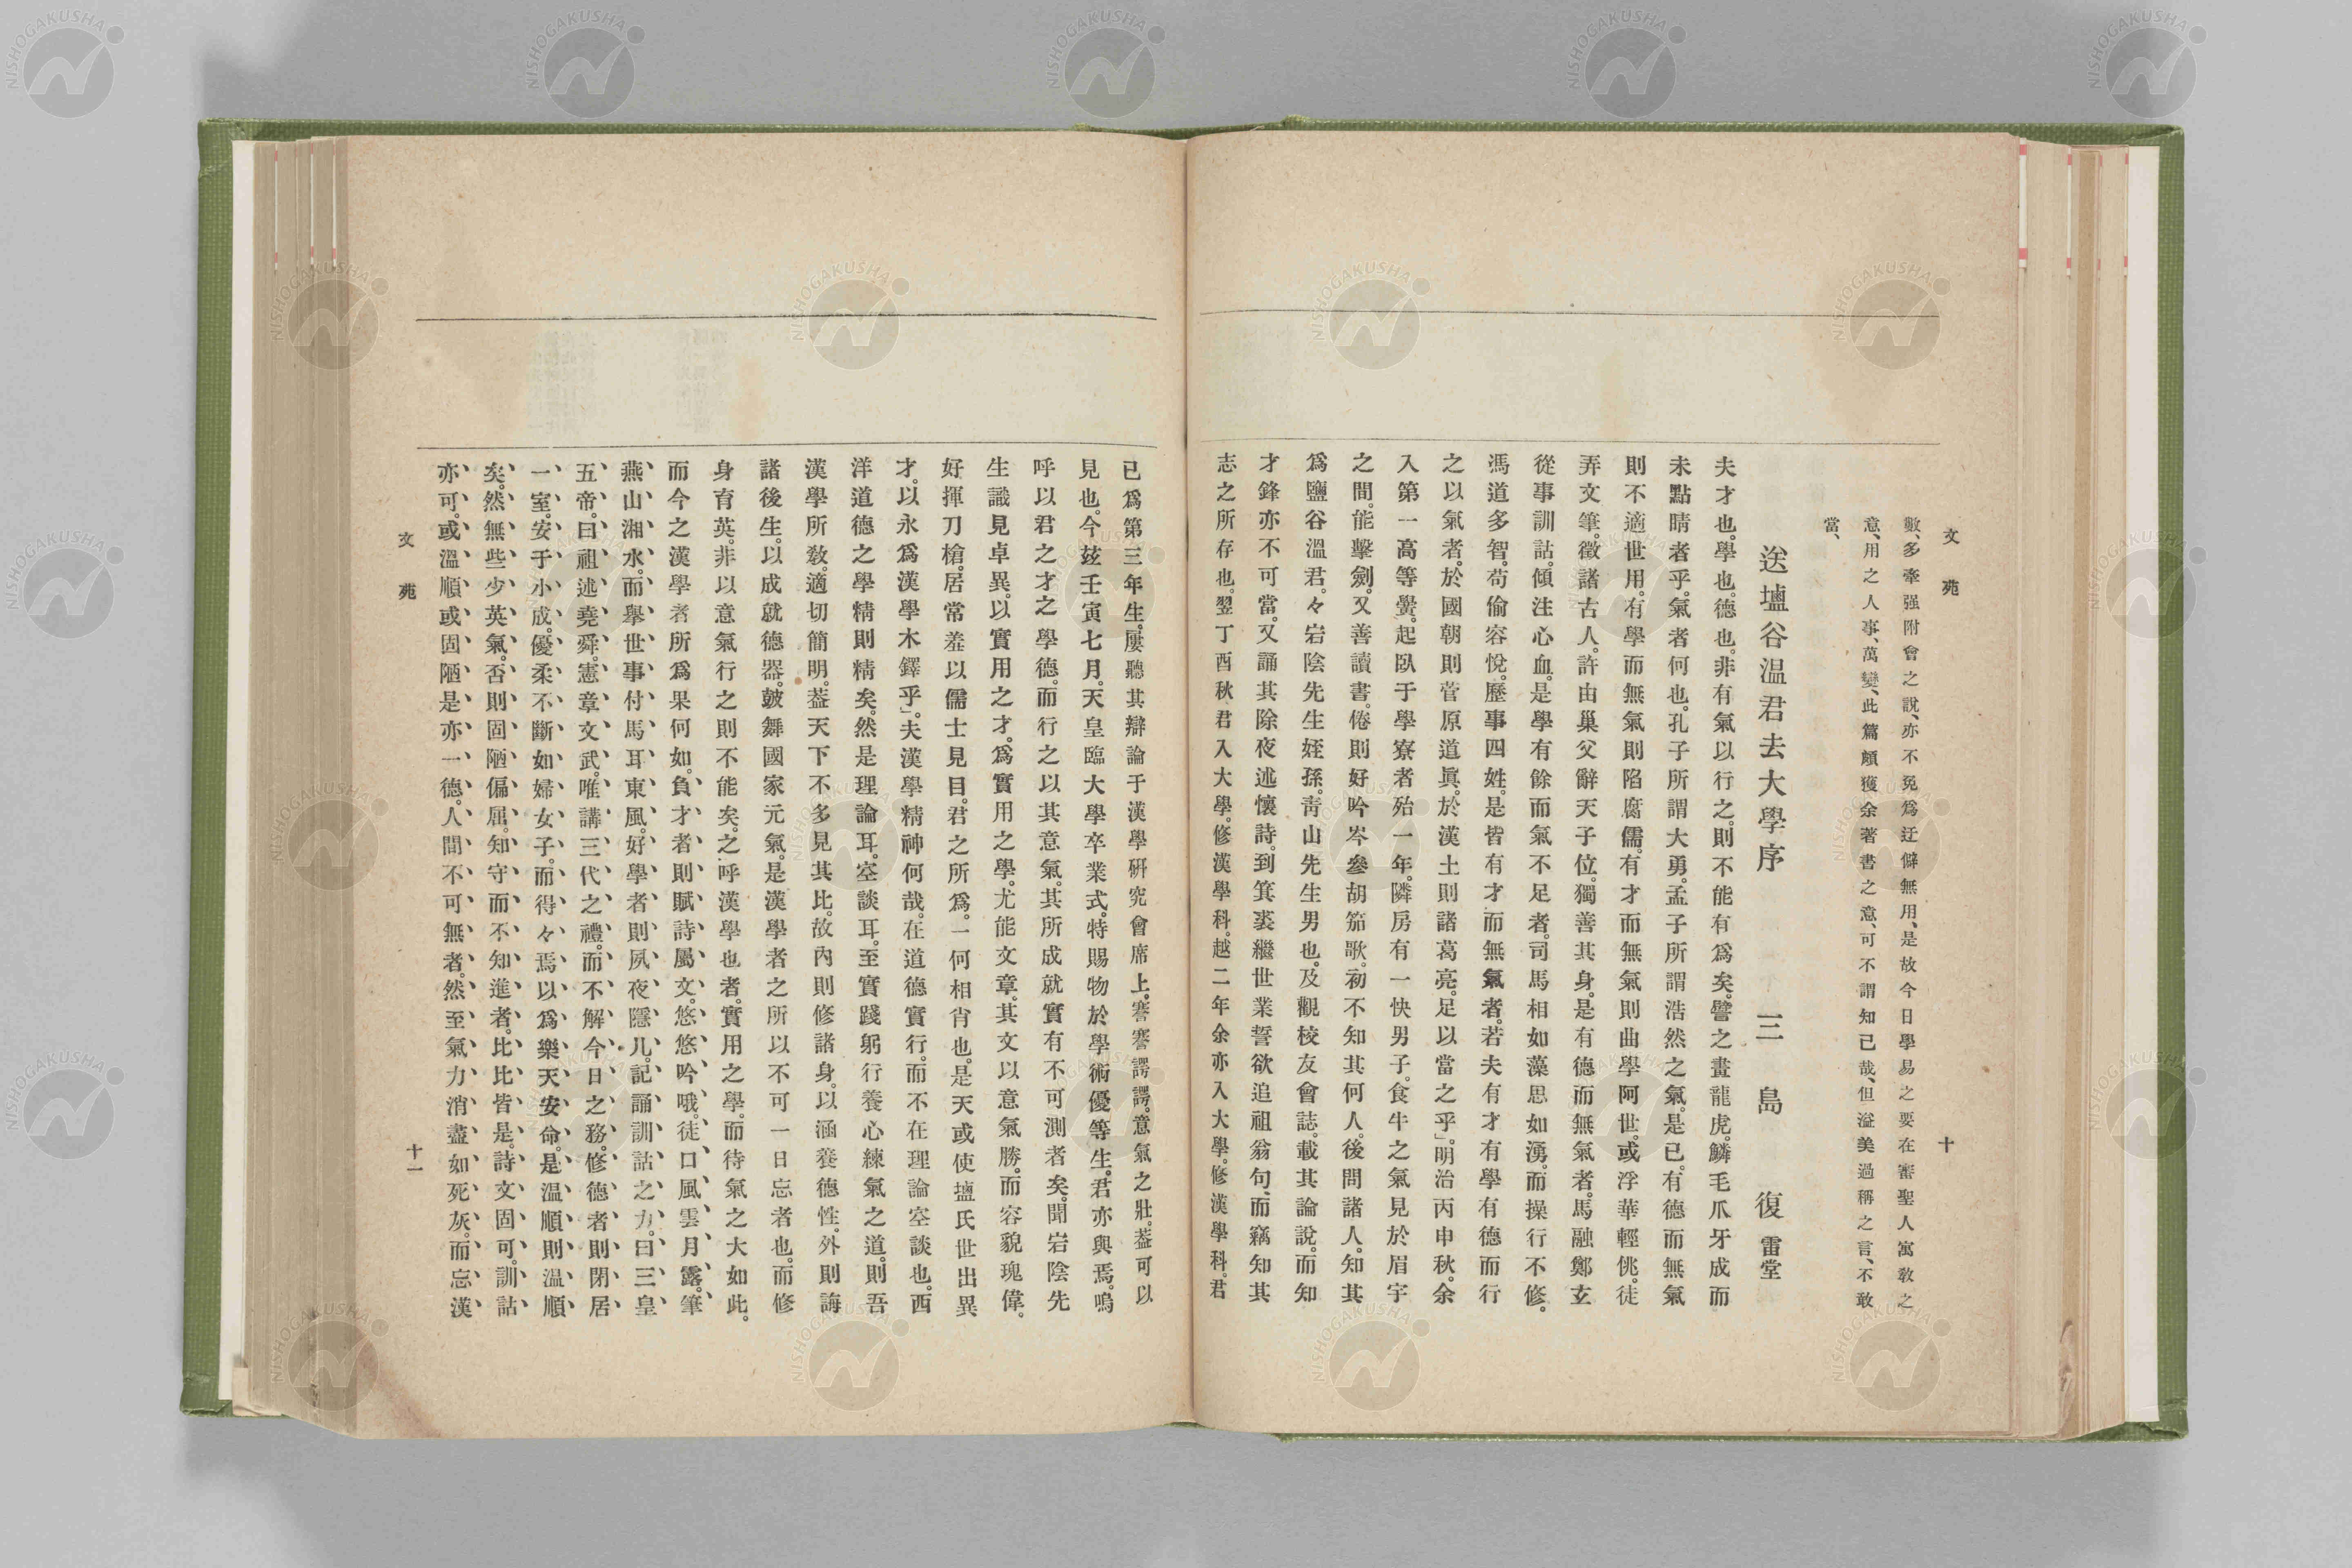 文苑
十
數、多牽强附會之說、亦不免爲迂僻無用、是故今日學易之要在審聖人寓敎之
意、用之人事、萬變、此篇頗獲余著書之意、可不謂知己哉、但溢美過稱之言、不敢
當、
送壚谷温君去大學序 三島復雷堂
夫才也。學也。德也。非有氣以行之。則不能有爲矣。譬之畫龍虎。鱗毛爪牙成而
未點睛者乎。氣者何也。孔子所謂大勇。孟子所謂浩然之氣。是已。有德而無氣
則不適世用。有學而無氣則陷腐儒。有才而無氣則曲學阿世。或浮華輕佻。徒
弄文筆。徵諸古人。許由巢父辭天子位。獨善其身。是有德而無氣者。馬融鄭玄
從事訓詁。傾注心血。是學有餘而氣不足者。司馬相如藻思如湧。而操行不修。
馮道多智。苟偷容悅。歷事四姓。是皆有才而無氣者。若夫有才有學有德而行
之以氣者。於國朝則菅原道眞。於漢土則諸葛亮。足以當之乎」。明治丙申秋。余
入第一高等黌。起臥于學寮者殆一年。隣房有一快男子。食牛之氣見於眉宇
之間。能擊劍。又善讀書。倦則好吟岑參胡笳歌。初不知其何人。後問諸人。知其
爲鹽谷溫君。々岩陰先生姪孫。靑山先生男也。及觀校友會誌。載其論說。而知
才鋒亦不可當。又誦其除夜述懷詩。到箕裘繼世業誓欲追祖翁句、而竊知其
志之所存也。翌丁酉秋君入大學。修漢學科。越二年余亦入大學。修漢學科。君
已爲第三年生。屢聽其辯論于漢學硏究會席上。謇謇諤諤。意氣之壯。葢可以
見也。今玆壬寅七月。天皇臨大學卒業式。特賜物於學術優等生。君亦與焉。嗚
呼以君之才之學德。而行之以其意氣。其所成就實有不可測者矣。聞岩陰先
生識見卓異。以實用之才。爲實用之學。尤能文章。其文以意氣勝。而容貌瑰偉。
好揮刀槍。居常羞以儒士見目。君之所爲。一何相肖也。是天或使壚氏世出異
才。以永爲漢學木鐸乎」。夫漢學精神何哉。在道德實行。而不在理論空談也。西
洋道德之學精則精矣。然是理論耳。空談耳。至實踐躬行養心練氣之道。則吾
漢學所敎。適切簡明。葢天下不多見其比。故內則修諸身。以涵養德性。外則誨
諸後生。以成就德器。皷舞國家元氣。是漢學者之所以不可一日忘者也。而修
身育英。非以意氣行之則不能矣。之呼漢學也者。實用之學。而待氣之大如此。
而今之漢學者所爲果何如。負才者則賦詩屬文。悠悠吟哦。徒口風雲月露。筆
燕山湘水。而擧世事付馬耳東風。好學者則夙夜隱几。記誦訓詁之力。曰三皇
五帝。曰祖述堯舜。憲章文武。唯講三代之禮。而不解今日之務。修德者則閉居
一室。安于小成。優柔不斷如婦女子。而得々焉以爲樂天安命。是溫順則溫順
矣。然無些少英氣。否則固陋偏屈。知守而不知進者。比比皆是。詩文固可。訓詁
亦可。或溫順或固陋是亦一德。人間不可無者。然至氣力消盡如死灰。而忘漢
文苑
十一
NISHOGAKUSHA